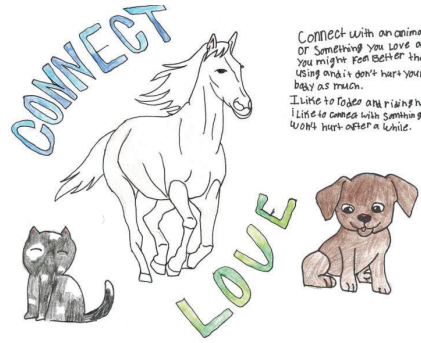 CONNECT
Connect with an anima
or Something You Love a
You might Feel Better the
using and it don't hurt your
body as much.
I Like to Rodeo and riding h
i Like to connect with Somthing
won't hurt after a while.
LOVE